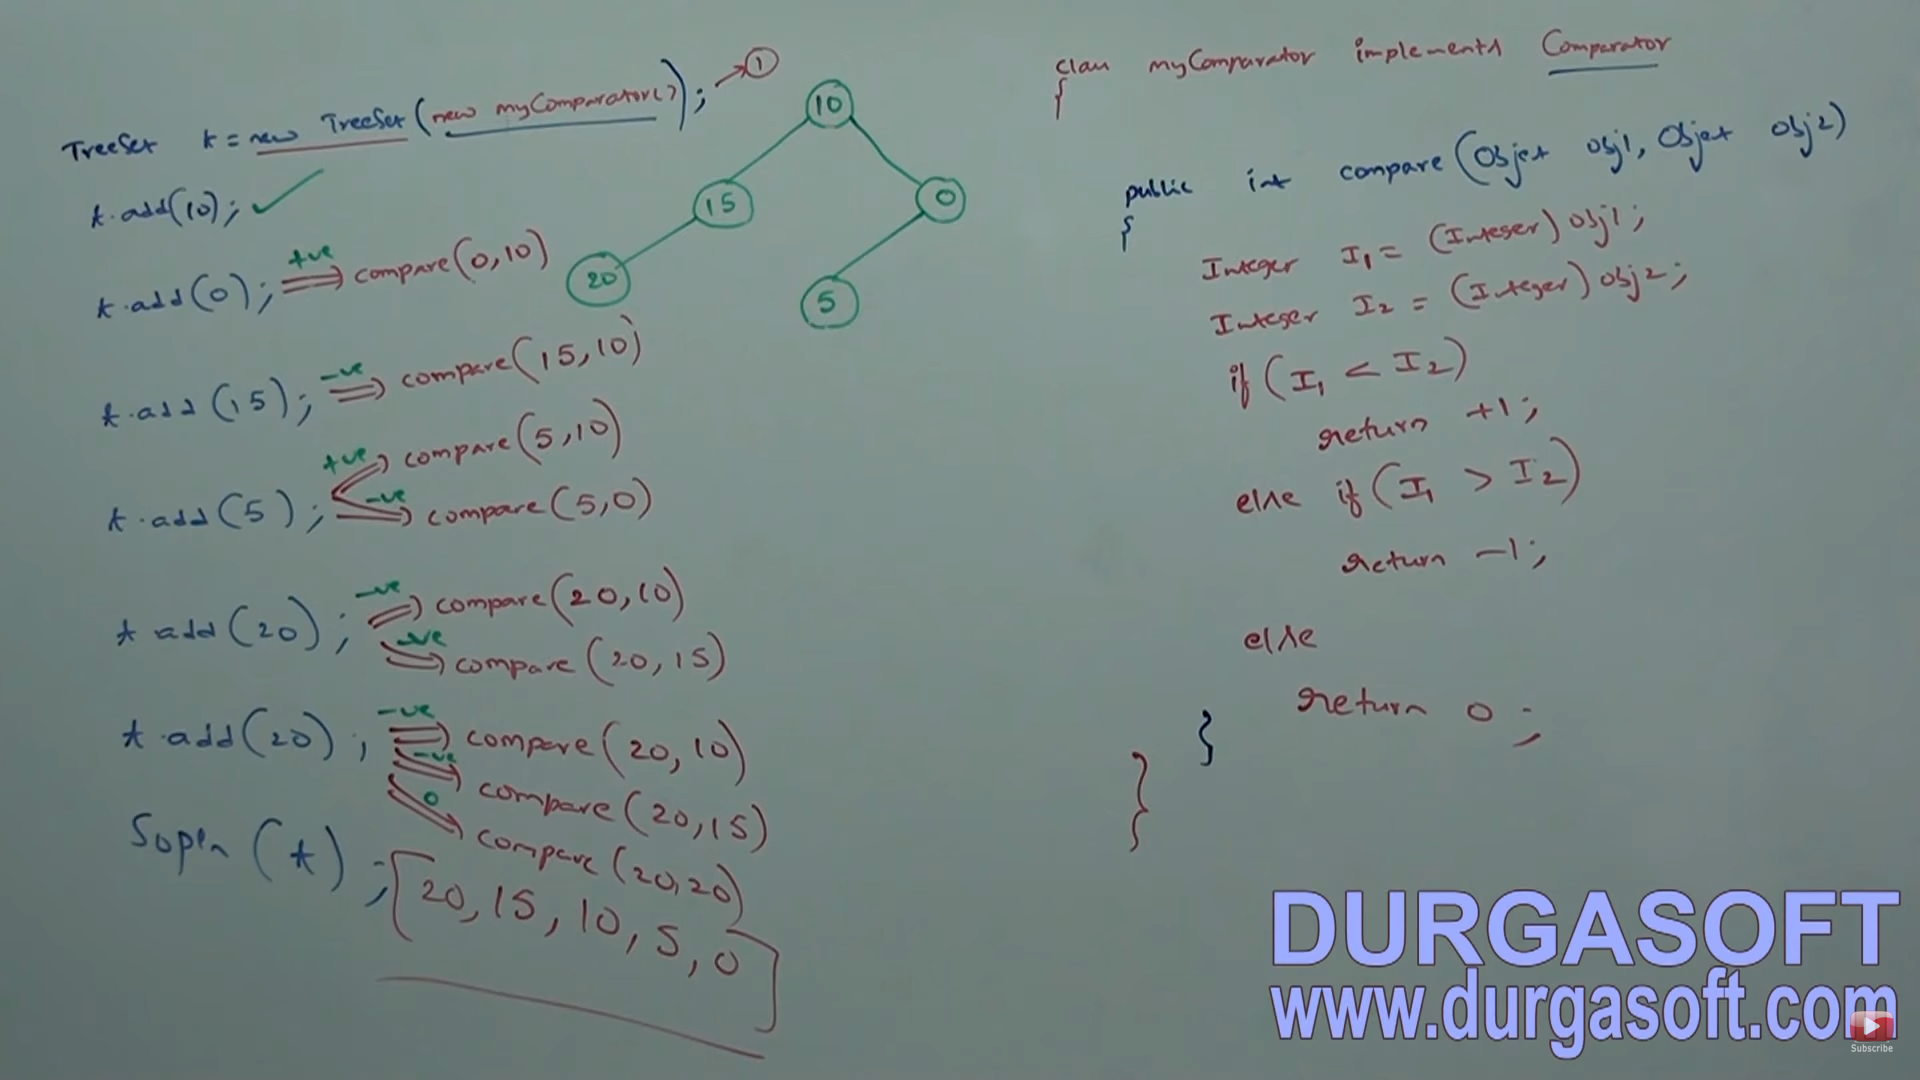 TreeSet t = new TreeSet(new myComparator()); → ①
t.add(10); ✓
t.add(0); +ve ⇒ compare(0,10)
t.add(15); -ve ⇒ compare(15,10)
t.add(5); +ve ⇒ compare(5,10)
-ve ⇒ compare(5,0)
t add(20); -ve ⇒ compare(20,10)
-ve ⇒ compare(20,15)
t.add(20); -ve ⇒ compare(20,10)
-ve ⇒ compare(20,15)
0 ⇒ compare(20,20)
Sopln(t);
[20, 15, 10, 5, 0]
10
15
0
20
5
class myComparator implements Comparator
{
public int compare(Object obj1, Object obj2)
{
Integer I1 = (Integer) obj1;
Integer I2 = (Integer) obj2;
if (I1 < I2)
return +1;
else if (I1 > I2)
return -1;
else
return 0;
}
}
DURGASOFT
www.durgasoft.com
Subscribe